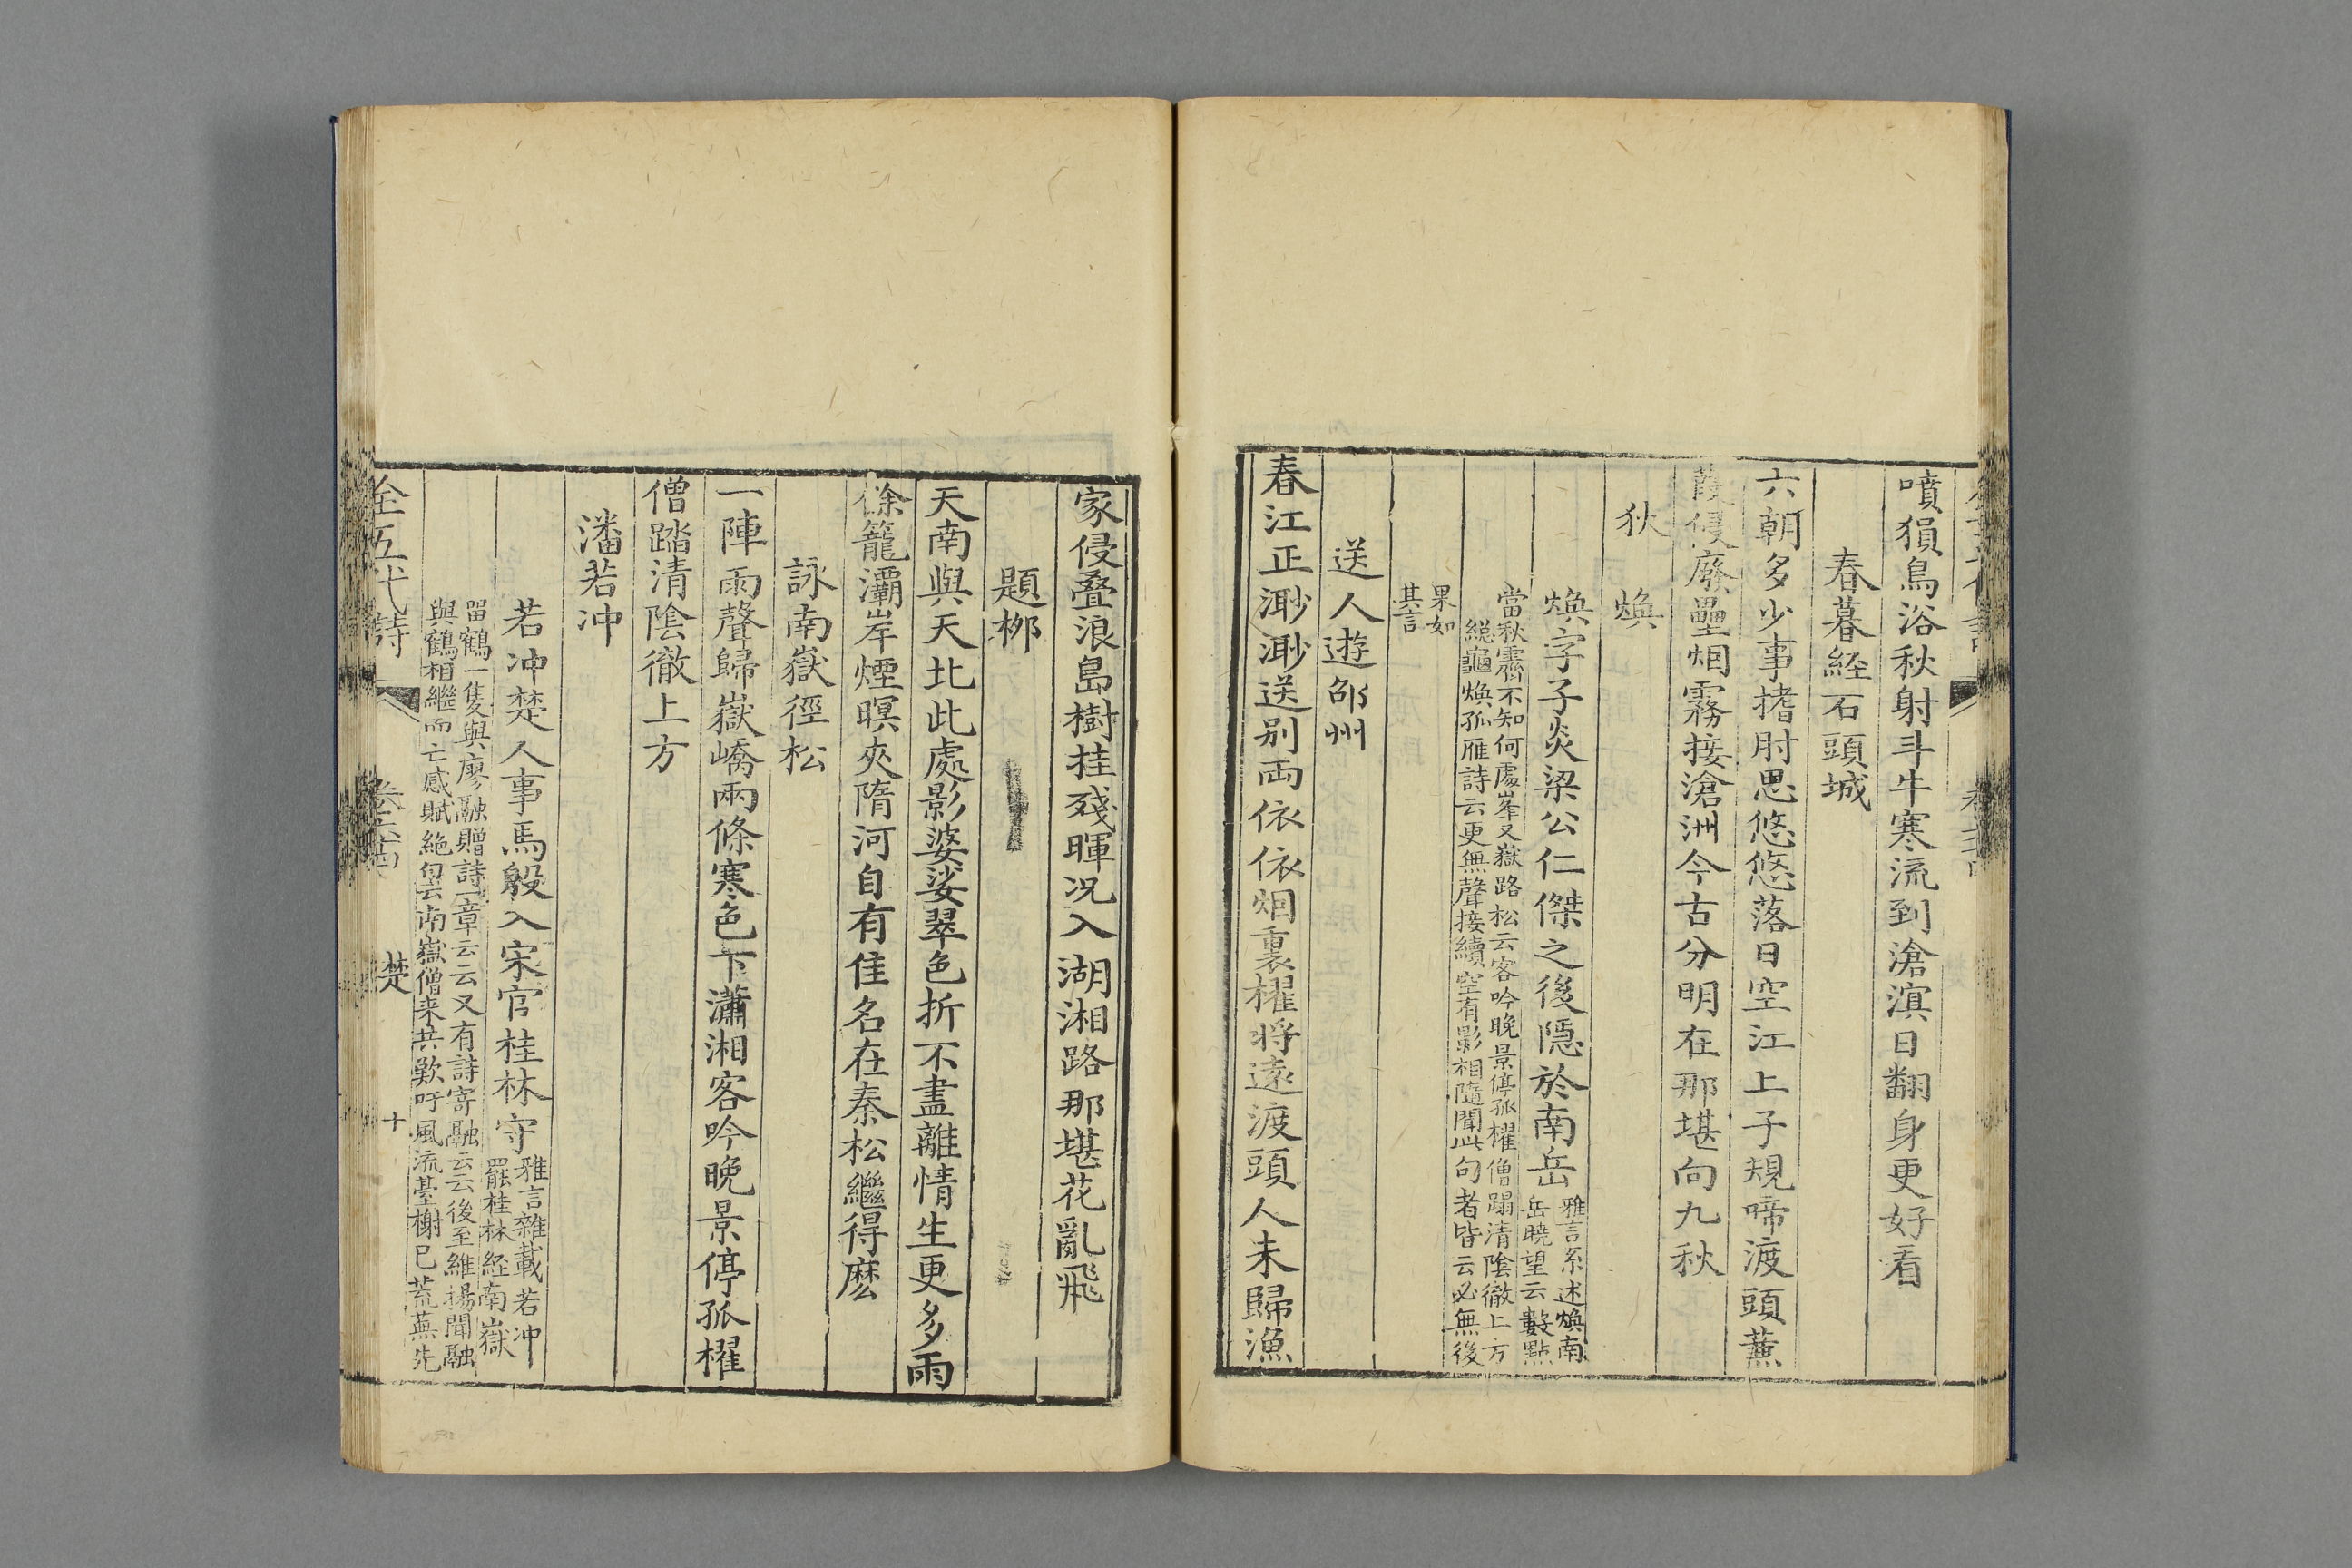 噴猖鳥浴秋射斗牛寒流到滄溟日翻身更好看
春暮経石頭城
六朝多少事搘肘思悠悠落日空江上子規啼渡頭蕙
葭侵廢壘烟霧接滄洲今古分明在那堪向九秋
狄煥
煥字子炎梁公仁傑之後隱於南岳
雅言系述煥南
岳曉望云數點
當秋霽不知何處峯又嶽路松云客吟晚景停孤櫂僧蹋清陰徹上方
緫龜煥孤雁詩云更無聲接續空有影相隨聞此句者皆云必無後
果如
其言
送人遊邵州
春江正渺渺送别両依依烟裏櫂将遠渡頭人未歸漁
家侵叠浪島樹挂殘暉况入湖湘路那堪花亂飛
題栁
天南與天北此處影婆娑翠色折不盡離情生更多雨
餘籠灞岸煙暝夾隋河自有佳名在秦松繼得麽
詠南嶽徑松
一陣雨聲歸嶽嶠兩條寒色下瀟湘客吟晚景停孤櫂
僧踏清陰徹上方
潘若冲
若冲楚人事馬殷入宋官桂林守
雅言雜載若冲
罷桂林経南嶽
畱鶴一隻與廖融贈詩一章云云又有詩寄融云云後至維揚聞融
與鶴相繼而亡感賦絶句云南嶽僧来共歎吁風流臺榭已荒蕪先
全五代詩 卷六十四 楚 十